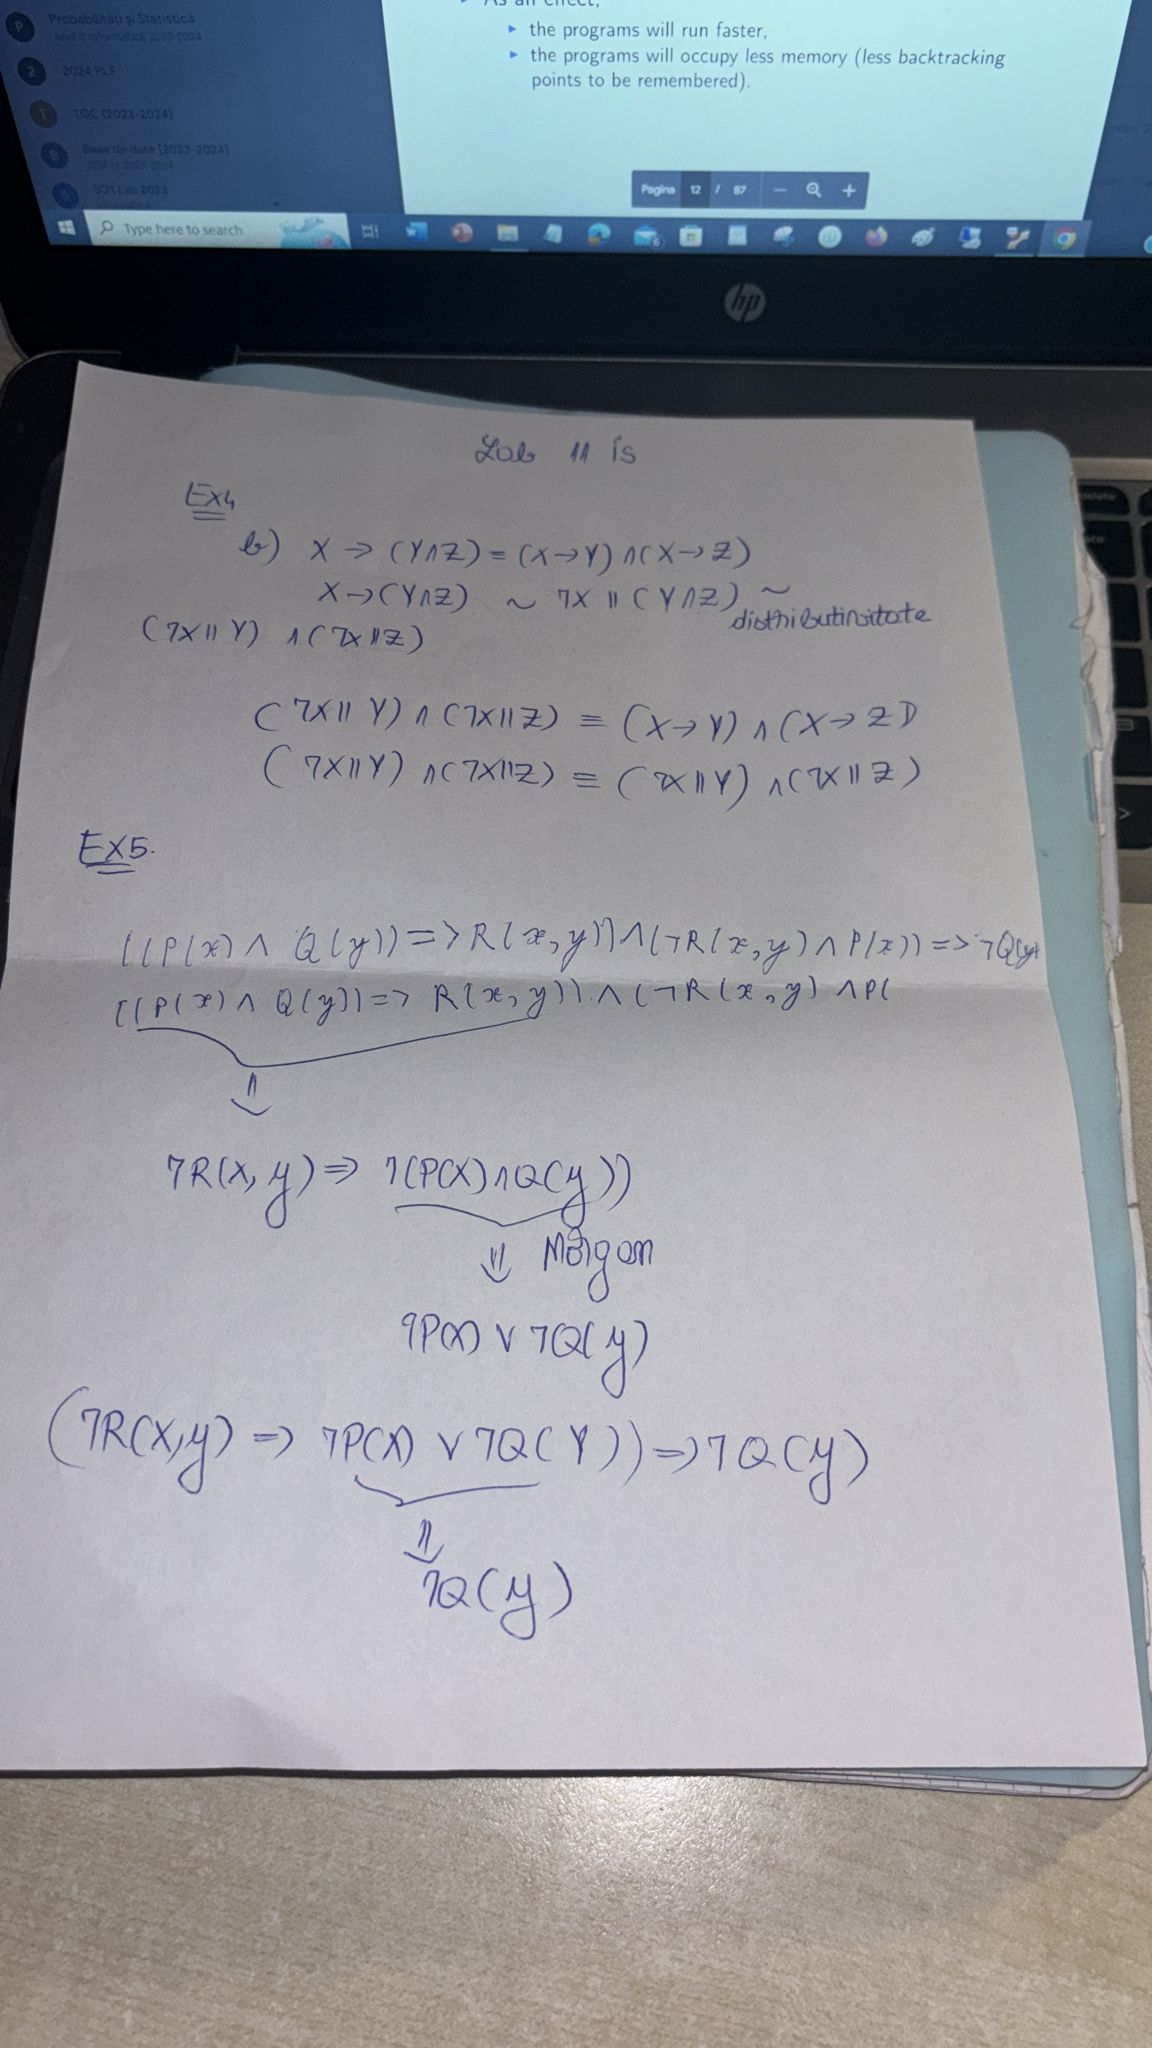 Probabilități și Statistică
Anul II Informatică 2023-2024
2024 PLF
TGC (2023-2024)
Baze de date [2023-2024]
SOT Lab 2023
As an effect,
the programs will run faster,
the programs will occupy less memory (less backtracking
points to be remembered).
Pagina 12 / 87 − +
Type here to search
hp
Lab 11 is
Ex4
b) X → (Y∧Z) = (X→Y) ∧ (X→Z)
X→(Y∧Z) ~ ¬X || (Y∧Z) ~
distributinsitate
(¬X || Y) ∧ (¬X || Z)
(¬X || Y) ∧ (¬X || Z) ≡ (X→Y) ∧ (X→Z)
(¬X || Y) ∧ (¬X || Z) ≡ (¬X || Y) ∧ (¬X || Z)
EX5.
((P(x) ∧ Q(y)) => R(x,y)) ∧ (¬R(x,y) ∧ P(x)) => ¬Q(y)
((P(x) ∧ Q(y)) => R(x,y)) ∧ (¬R(x,y) ∧ P(
⇓
¬R(x,y) => ¬(P(x) ∧ Q(y))
⇓ Morgan
¬P(x) ∨ ¬Q(y)
(¬R(x,y) => ¬P(x) ∨ ¬Q(Y)) => ¬Q(y)
⇓
¬Q(y)
delete